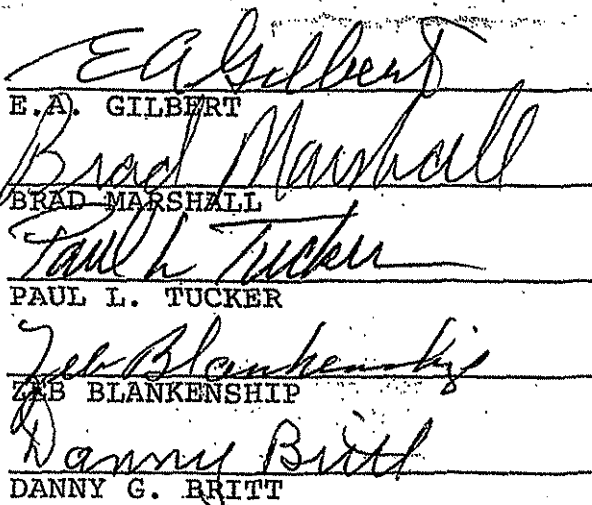 E A Gilbert
E.A. GILBERT
Brad Marshall
BRAD MARSHALL
Paul L Tucker
PAUL L. TUCKER
Zeb Blankenship
ZEB BLANKENSHIP
Danny Britt
DANNY G. BRITT